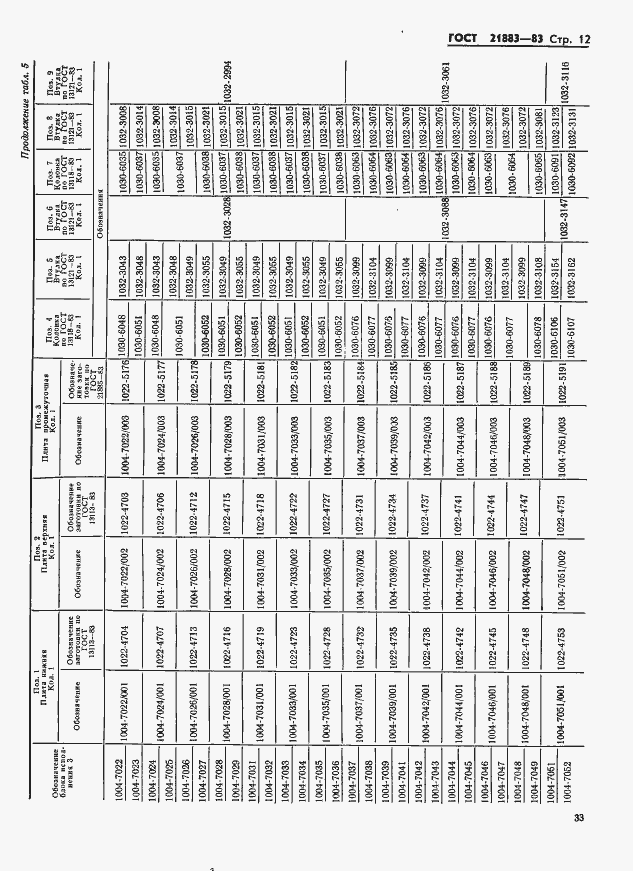 ГОСТ 21883—83 Стр. 12
Продолжение табл. 5
Обозначение блока исполнения 3
Поз. 1 Плита нижняя Кол. 1
Поз. 2 Плита верхняя Кол. 1
Поз. 3 Плита промежуточная Кол. 1
Поз. 4 Колонка по ГОСТ 13118—83 Кол. 1
Поз. 5 Втулка по ГОСТ 13121—83 Кол. 1
Поз. 6 Втулка по ГОСТ 13121—83 Кол. 1
Поз. 7 Колонка по ГОСТ 13118—83 Кол. 1
Поз. 8 Втулка по ГОСТ 13121—83 Кол. 1
Поз. 9 Втулка по ГОСТ 13121—83 Кол. 1
Обозначение
Обозначение заготовки по ГОСТ 13113—83
Обозначение
Обозначение заготовки по ГОСТ 13113—83
Обозначение
Обозначение заготовки по ГОСТ 21885—83
Обозначения
1004-7022 1004-7022/001 1022-4704 1004-7022/002 1022-4703 1004-7022/003 1022-5176 1030-6048 1032-3043 1032-3028 1030-6035 1032-3008 1032-2994
1004-7023 1030-6051 1032-3048 1030-6037 1032-3014
1004-7024 1004-7024/001 1022-4707 1004-7024/002 1022-4706 1004-7024/003 1022-5177 1030-6048 1032-3043 1030-6035 1032-3008
1004-7025 1030-6051 1032-3048 1030-6037 1032-3014
1004-7026 1004-7026/001 1022-4713 1004-7026/002 1022-4712 1004-7026/003 1022-5178 1032-3049 1032-3015
1004-7027 1030-6052 1032-3055 1030-6038 1032-3021
1004-7028 1004-7028/001 1022-4716 1004-7028/002 1022-4715 1004-7028/003 1022-5179 1030-6051 1032-3049 1030-6037 1032-3015
1004-7029 1030-6052 1032-3055 1030-6038 1032-3021
1004-7031 1004-7031/001 1022-4719 1004-7031/002 1022-4718 1004-7031/003 1022-5181 1030-6051 1032-3049 1030-6037 1032-3015
1004-7032 1030-6052 1032-3055 1030-6038 1032-3021
1004-7033 1004-7033/001 1022-4723 1004-7033/002 1022-4722 1004-7033/003 1022-5182 1030-6051 1032-3049 1030-6037 1032-3015
1004-7034 1030-6052 1032-3055 1030-6038 1032-3021
1004-7035 1004-7035/001 1022-4728 1004-7035/002 1022-4727 1004-7035/003 1022-5183 1030-6051 1032-3049 1030-6037 1032-3015
1004-7036 1030-6052 1032-3055 1030-6038 1032-3021
1004-7037 1004-7037/001 1022-4732 1004-7037/002 1022-4731 1004-7037/003 1022-5184 1030-6076 1032-3099 1032-3088 1030-6063 1032-3072 1032-3061
1004-7038 1030-6077 1032-3104 1030-6064 1032-3076
1004-7039 1004-7039/001 1022-4735 1004-7039/002 1022-4734 1004-7039/003 1022-5185 1030-6076 1032-3099 1030-6063 1032-3072
1004-7041 1030-6077 1032-3104 1030-6064 1032-3076
1004-7042 1004-7042/001 1022-4738 1004-7042/002 1022-4737 1004-7042/003 1022-5186 1030-6076 1032-3099 1030-6063 1032-3072
1004-7043 1030-6077 1032-3104 1030-6064 1032-3076
1004-7044 1004-7044/001 1022-4742 1004-7044/002 1022-4741 1004-7044/003 1022-5187 1030-6076 1032-3099 1030-6063 1032-3072
1004-7045 1030-6077 1032-3104 1030-6064 1032-3076
1004-7046 1004-7046/001 1022-4745 1004-7046/002 1022-4744 1004-7046/003 1022-5188 1030-6076 1032-3099 1030-6063 1032-3072
1004-7047 1030-6077 1032-3104 1030-6064 1032-3076
1004-7048 1004-7048/001 1022-4748 1004-7048/002 1022-4747 1004-7048/003 1022-5189 1032-3099 1032-3072
1004-7049 1030-6078 1032-3108 1030-6065 1032-3081
1004-7051 1004-7051/001 1022-4753 1004-7051/002 1022-4751 1004-7051/003 1022-5191 1030-6106 1032-3154 1032-3147 1030-6091 1032-3123 1032-3116
1004-7052 1030-6107 1032-3162 1030-6092 1032-3131
33